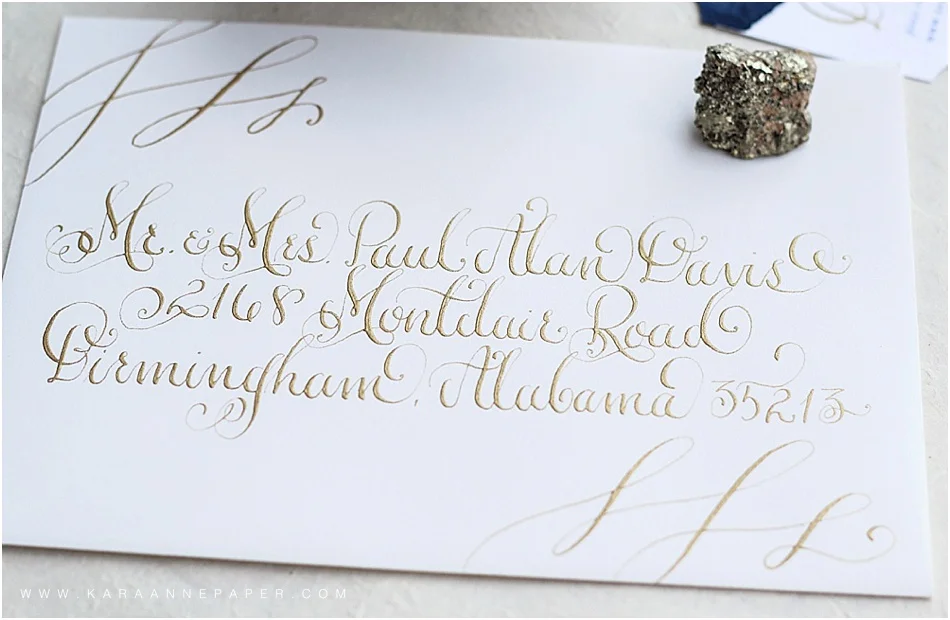 Mr. & Mrs. Paul Alan Davis
32168 Montclair Road
Birmingham, Alabama 35213
WWW.KARAANNEPAPER.COM